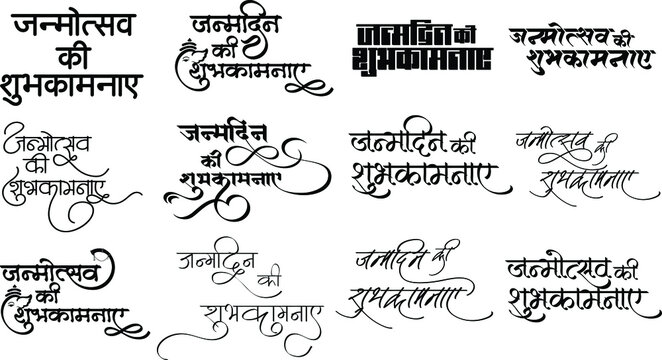 जन्मोत्सव
की
शुभकामनाए
जन्मदिन
की
शुभकामनाए
जन्मदिन की
शुभकामनाए
जन्मोत्सव की
शुभकामनाए
जन्मोत्सव
की
शुभकामनाए
जन्मदिन
की
शुभकामनाए
जन्मदिन की
शुभकामनाए
जन्मोत्सव की
शुभकामनाए
जन्मोत्सव
की
शुभकामनाए
जन्मदिन
की
शुभकामनाए
जन्मदिन की
शुभकामनाए
जन्मोत्सव की
शुभकामनाए